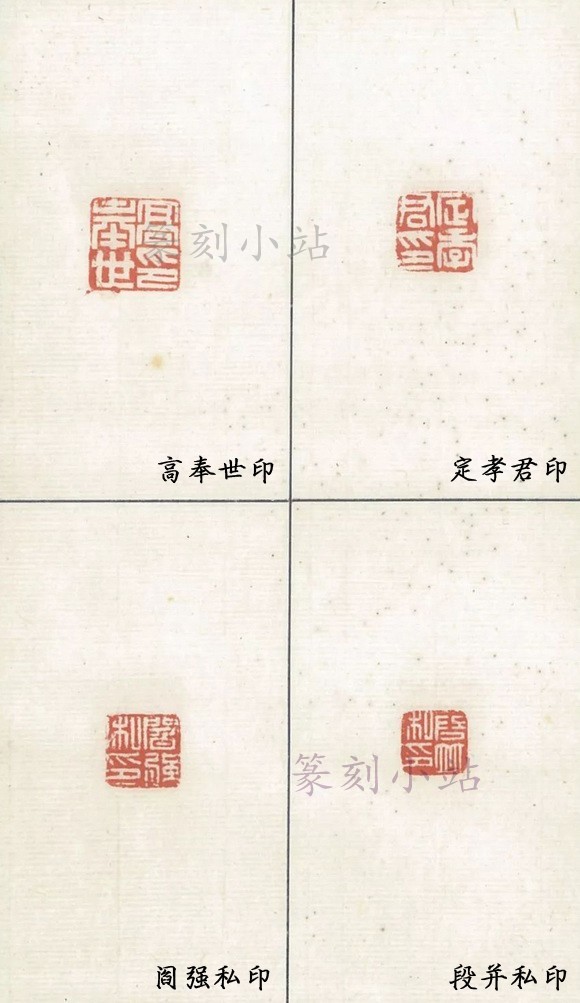 篆刻小站
高奉世印
定孝君印
篆刻小站
阎强私印
段并私印